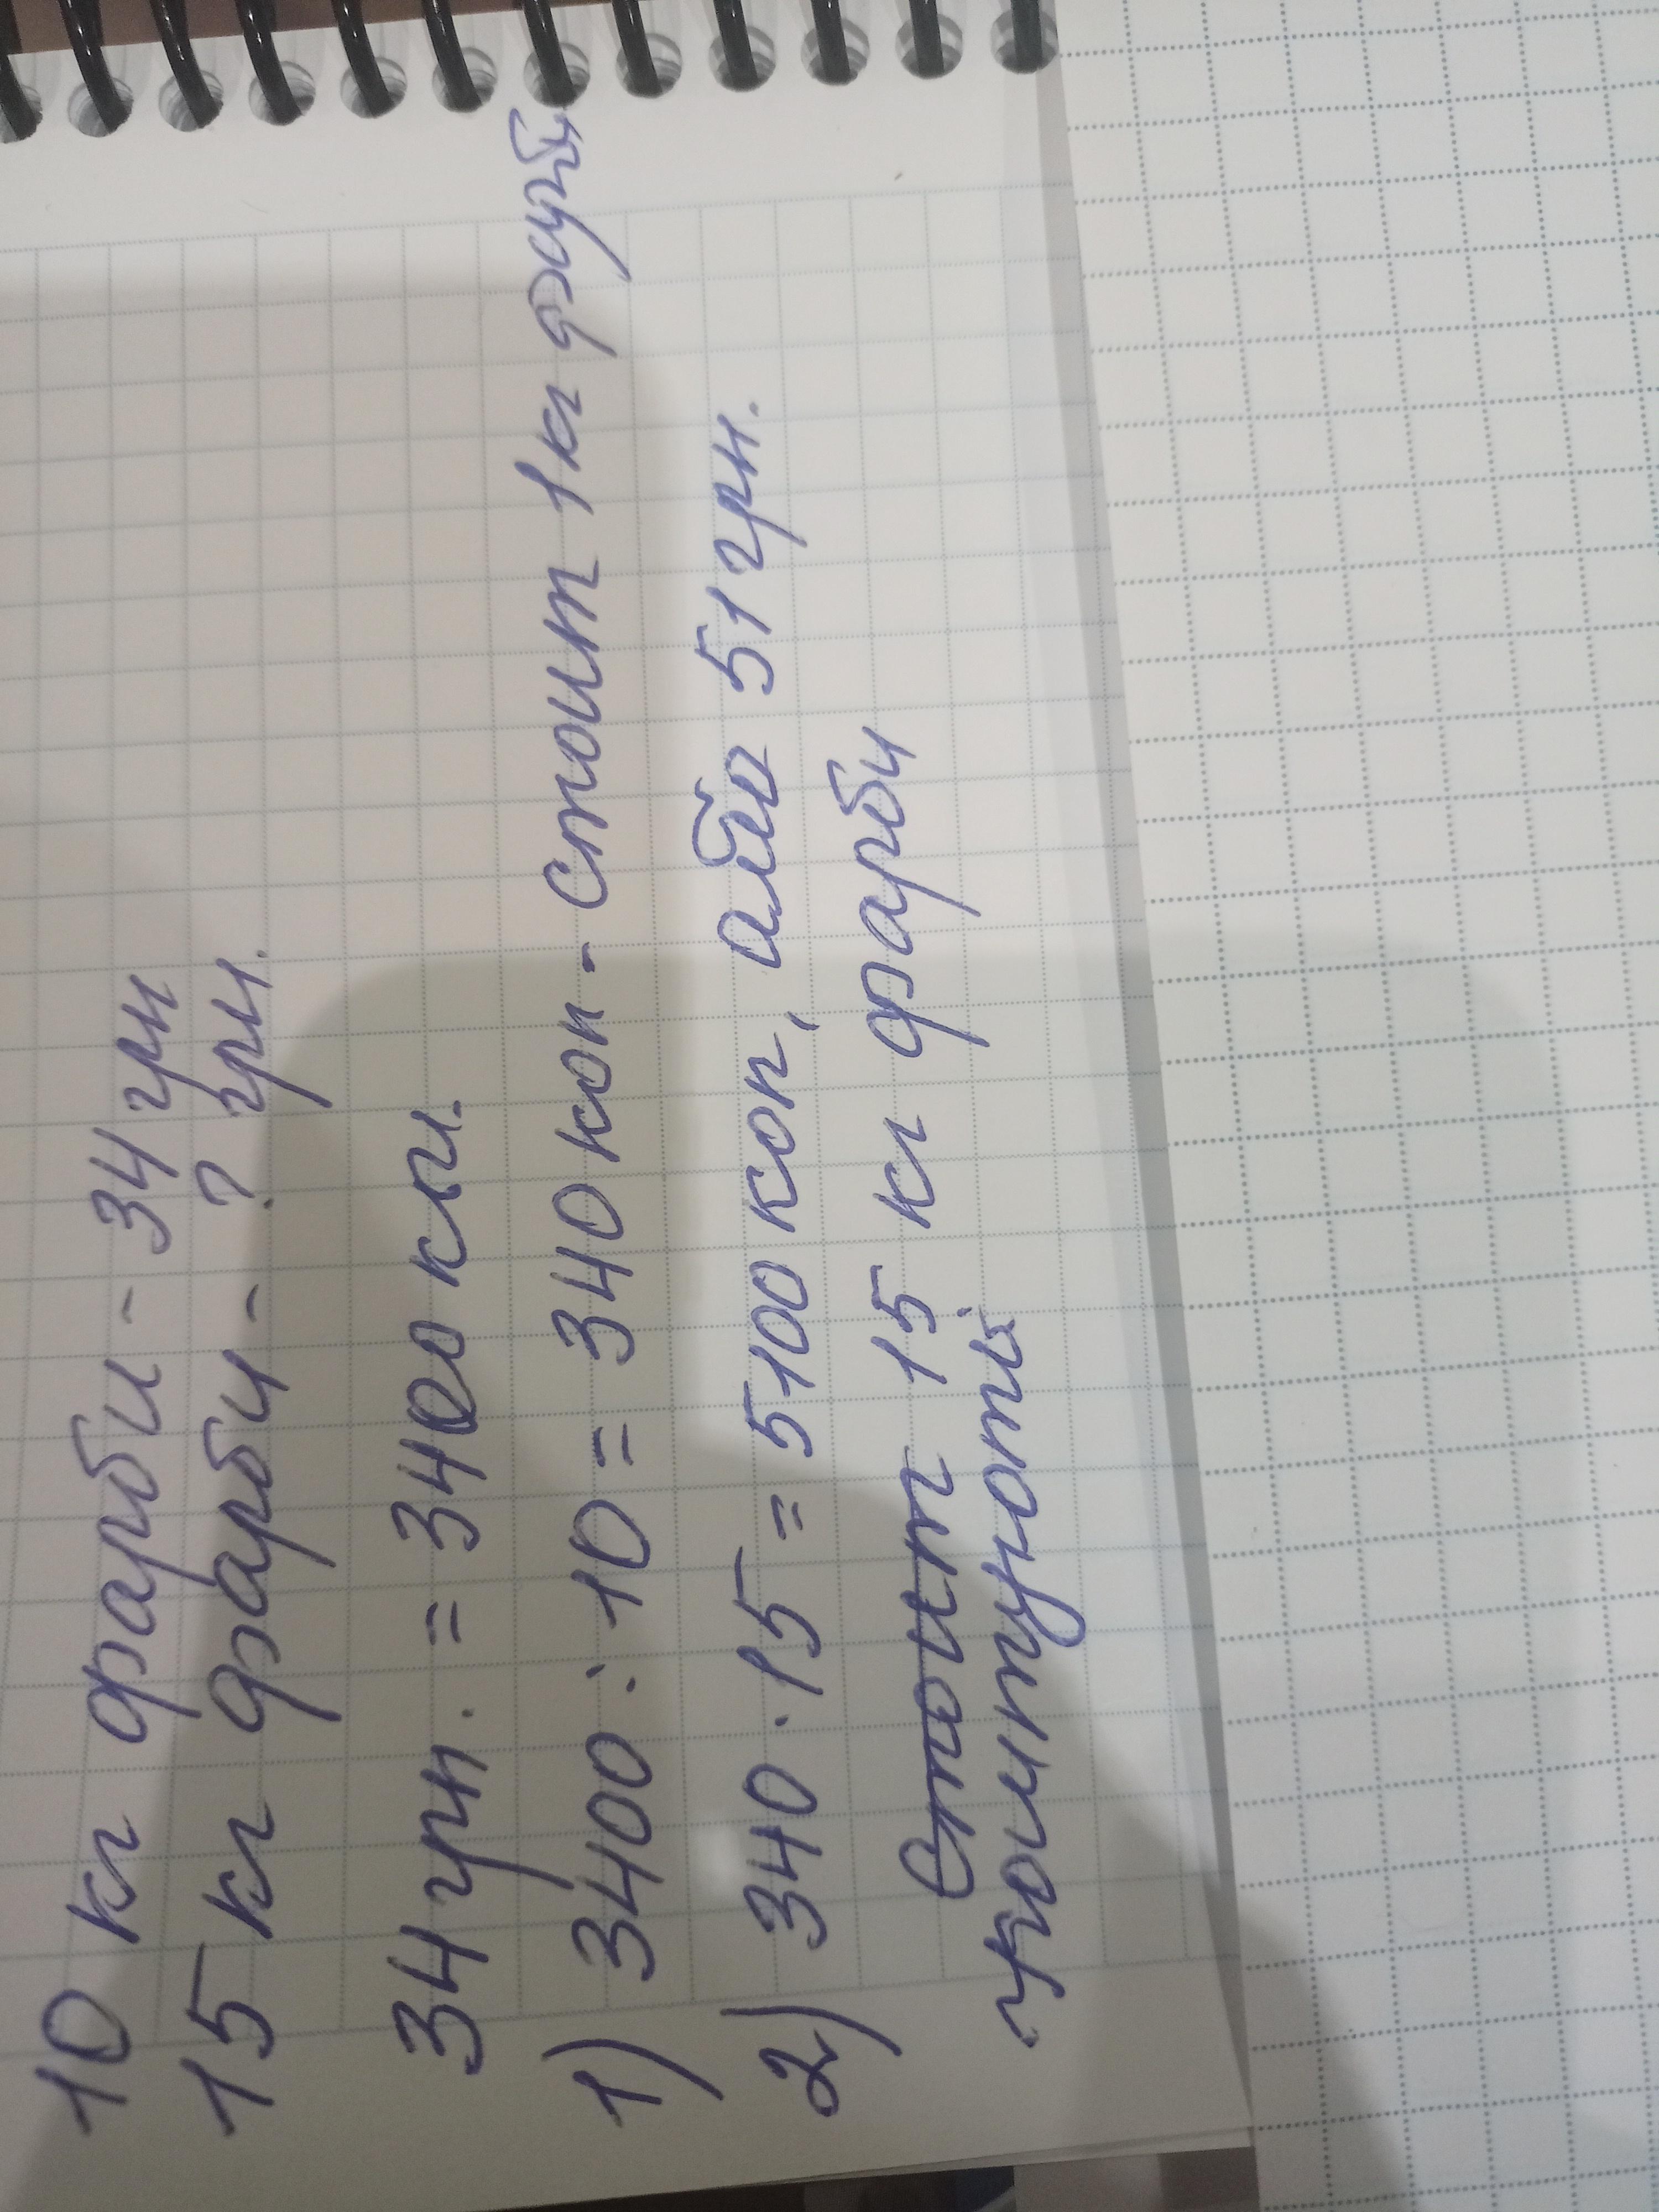 10 кг фарби - 34 грн
15 кг фарби - ? грн.
34 грн. = 3400 кг.
1) 3400 : 10 = 340 коп - стоит 1 кг фарби
2) 340 · 15 = 5100 коп, або 51 грн.
Стоит 15 кг фарби
коштують